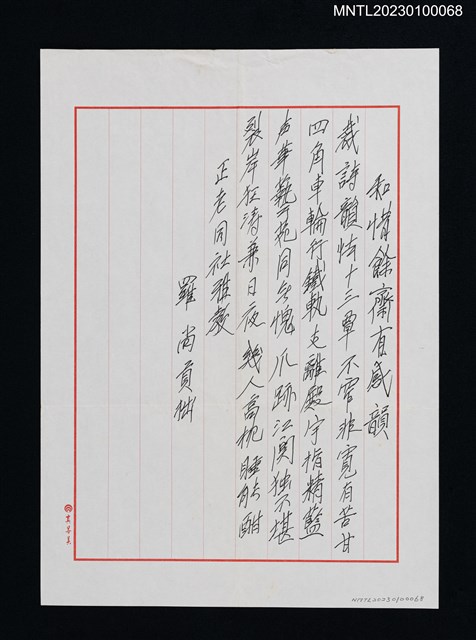 MNTL20230100068
和惜餘齋有感韻
裁詩韻怯十三覃不窄非寬有苦甘
四角車輪行鐵軌支離殿宇指精藍
声華藝苑同無愧爪跡江関独不堪
裂岸狂濤兼日夜幾人高枕睡能酣
正老同社雅教
羅尚貢拙
MNTL20230100068